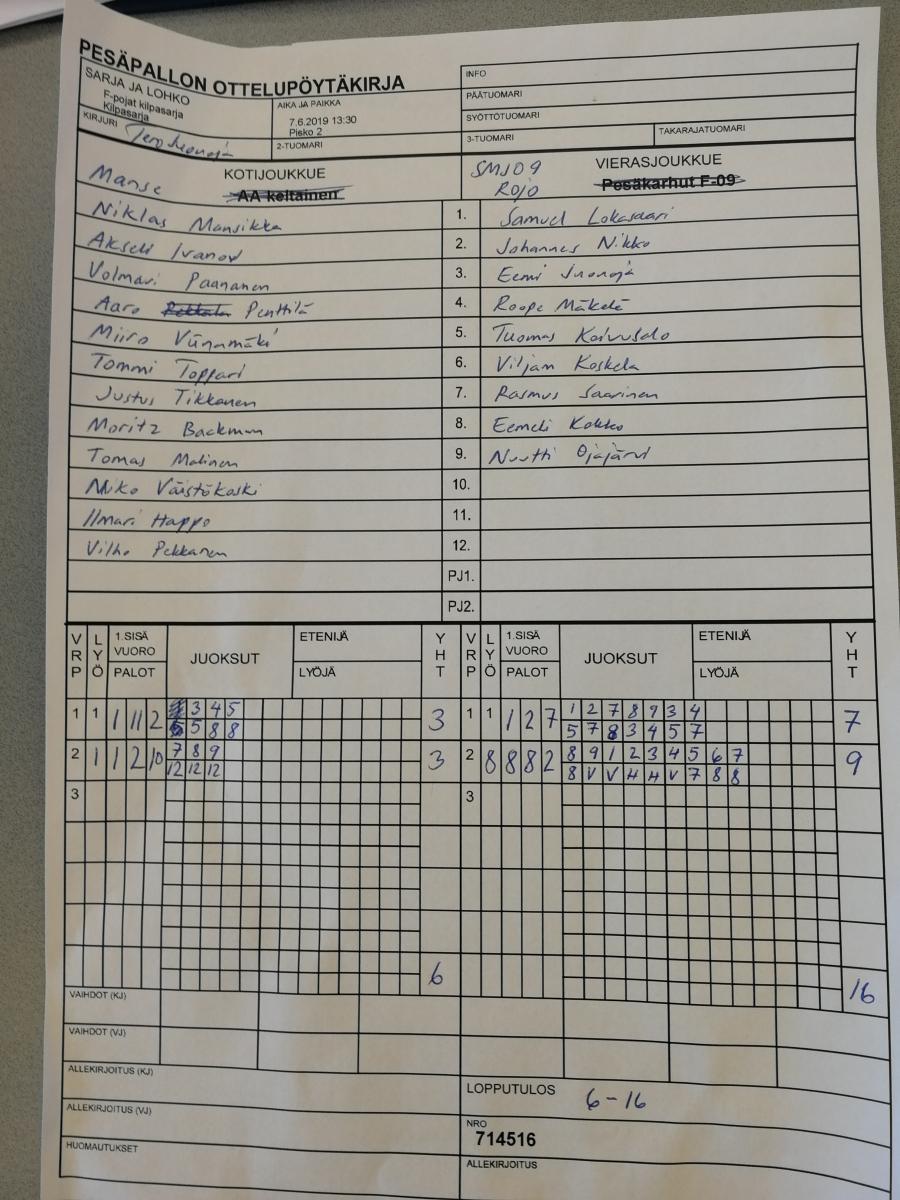 PESÄPALLON OTTELUPÖYTÄKIRJA
SARJA JA LOHKO
F-pojat kilpasarja
Kilpasarja
KIRJURI
AIKA JA PAIKKA
7.6.2019 13:30
Pisko 2
2-TUOMARI
INFO
PÄÄTUOMARI
SYÖTTÖTUOMARI
3-TUOMARI
TAKARAJATUOMARI
KOTIJOUKKUE
Manse
AA keltainen
VIERASJOUKKUE
SMJ09
ROJO
Pesäkarhut F-09
Niklas Mansikka 1. Samuel Lokasaari
Akseli Ivanov 2. Johannes Nikko
Volmari Paananen 3. Eemi Juonoja
Aaro Pekkala Penttilä 4. Roope Mäkelä
Miiro Viinamäki 5. Tuomas Koivusalo
Tommi Toppari 6. Viljam Koskela
Justus Tikkanen 7. Rasmus Saarinen
Moritz Backman 8. Eemeli Kokko
Tomas Malinen 9. Nuutti Ojajärvi
Niko Väistökoski 10.
Ilmari Happo 11.
Vilho Pekkanen 12.
PJ1.
PJ2.
VRP LYÖ 1.SISÄ VUORO PALOT JUOKSUT ETENIJÄ LYÖJÄ YHT VRP LYÖ 1.SISÄ VUORO PALOT JUOKSUT ETENIJÄ LYÖJÄ YHT
1 1 1 11 2 3 4 5 3 1 1 1 2 7 1 2 7 8 9 3 4 7
5 8 8 5 7 8 3 4 5 7
2 1 1 2 10 7 8 9 3 2 8 8 8 2 8 9 1 2 3 4 5 6 7 9
12 12 12 8 V V H H V 7 8 8
3 3
6 16
VAIHDOT (KJ)
VAIHDOT (VJ)
ALLEKIRJOITUS (KJ)
ALLEKIRJOITUS (VJ)
HUOMAUTUKSET
LOPPUTULOS 6-16
NRO
714516
ALLEKIRJOITUS